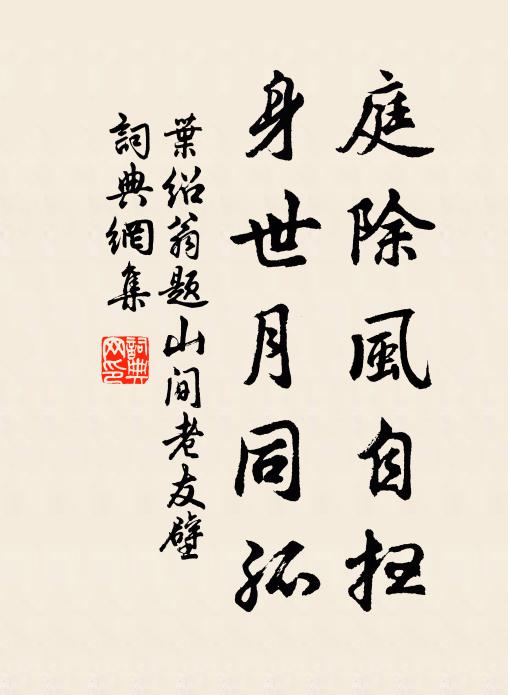 庭除風自扫
身世月同孤
葉绍翁题山间老友壁
詞典網集
詞典网印